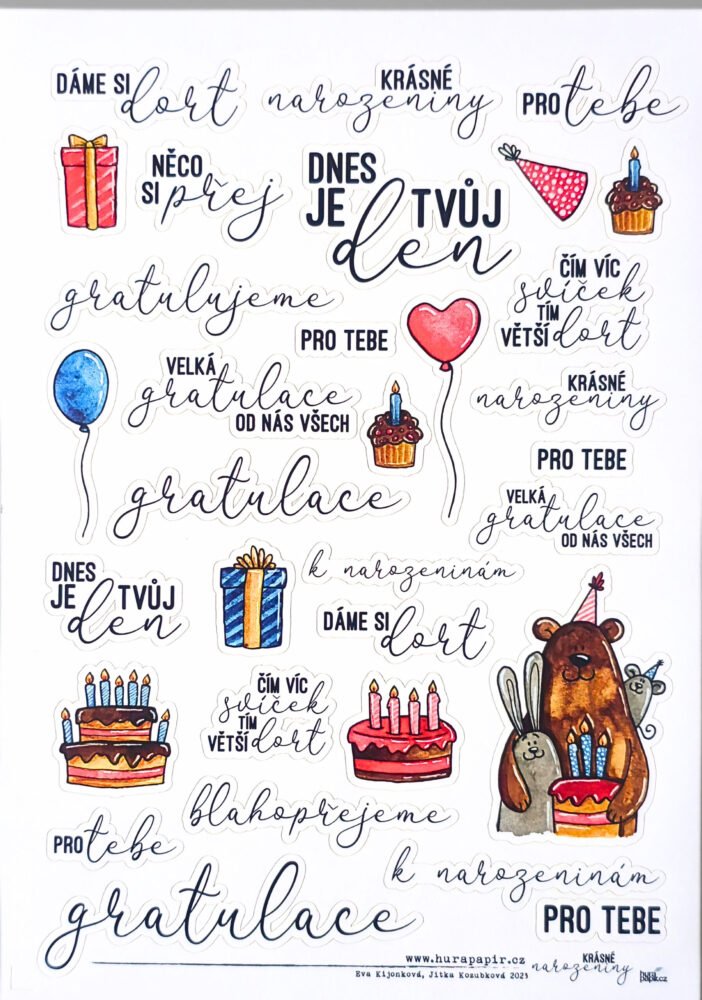 DÁME SI dort
KRÁSNÉ
narozeniny
PRO tebe
NĚCO
SI přej
DNES
JE TVŮJ
den
gratulujeme
ČÍM VÍC
svíček
TÍM
VĚTŠÍ dort
PRO TEBE
VELKÁ
gratulace
OD NÁS VŠECH
KRÁSNÉ
narozeniny
PRO TEBE
gratulace
VELKÁ
gratulace
OD NÁS VŠECH
DNES
JE TVŮJ
den
k narozeninám
DÁME SI dort
ČÍM VÍC
svíček
TÍM
VĚTŠÍ dort
blahopřejeme
PRO tebe
k narozeninám
gratulace
PRO TEBE
www.hurapapir.cz
Eva Kijonková, Jitka Kozubková 2021
KRÁSNÉ
narozeniny
hura
papir.cz